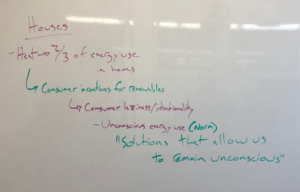 Houses
- Heat → 2/3 of energy use
in homes
↳ Consumer incentives for renewables
↳ Consumer laziness/intentionality
- Unconscious energy use (Norm)
"Solutions that allow us
to remain unconscious"